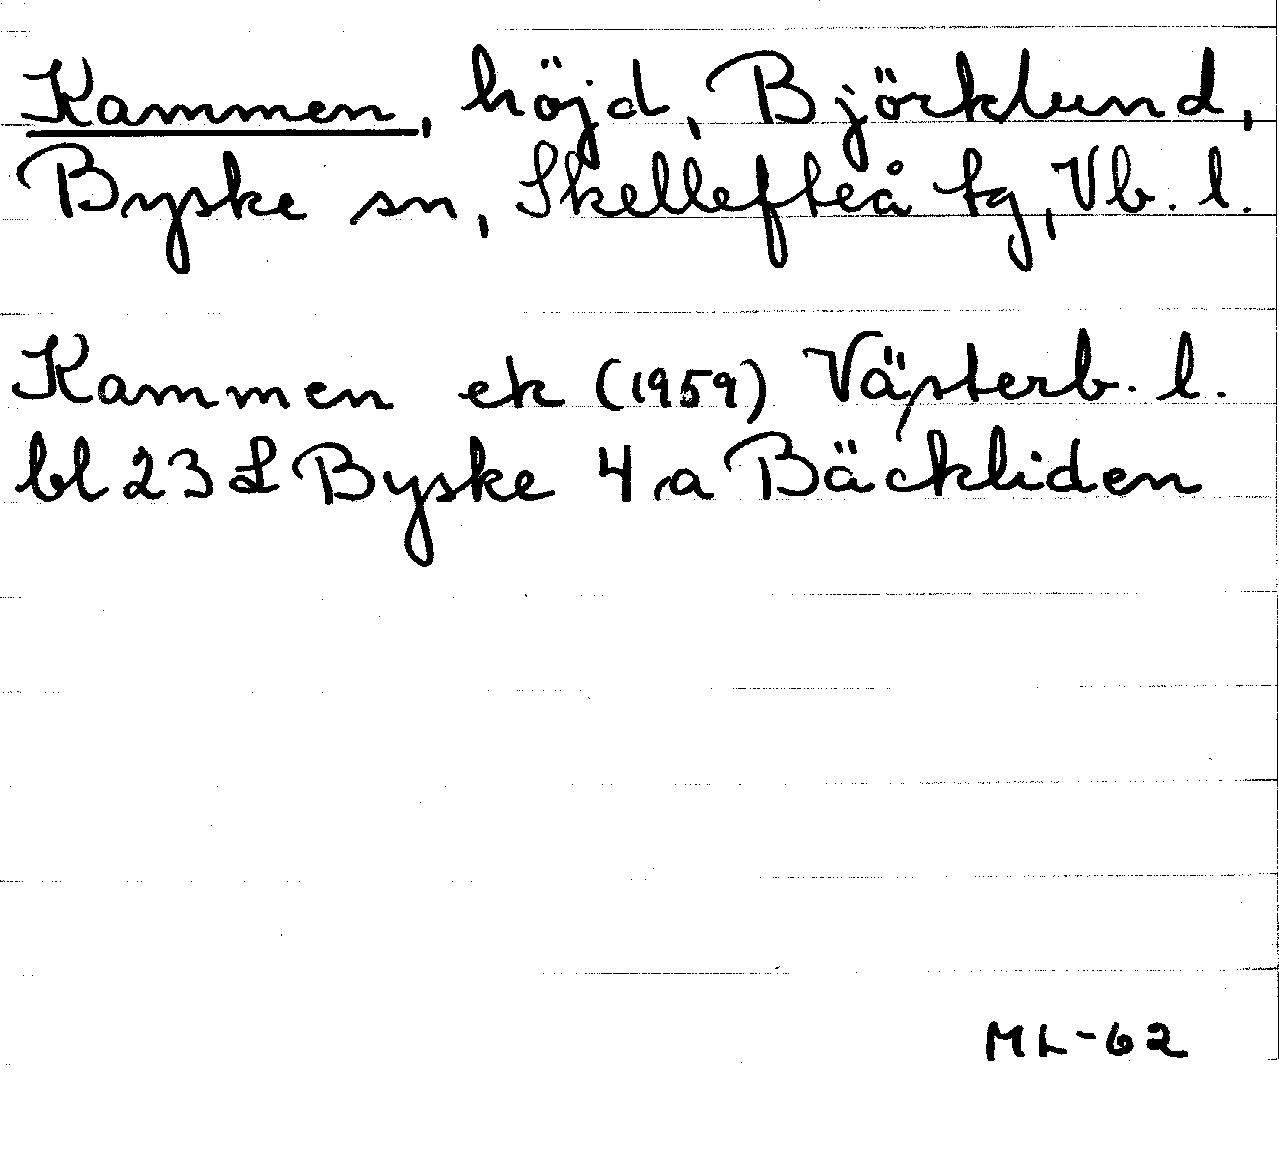 Kammen, höjd, Björklund,
Byske sn, Skellefteå tg, Vb. l.
Kammen ek (1959) Västerb. l.
bl 23 L Byske 4 a Bäckliden
ML-62